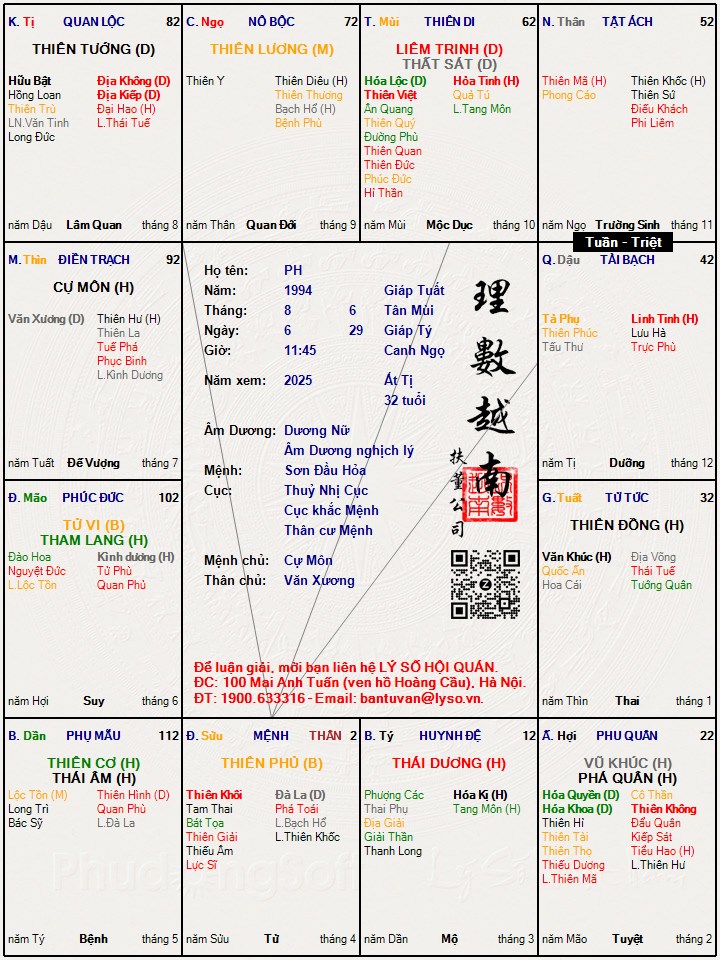 K. Tị QUAN LỘC 82
THIÊN TƯỚNG (D)
Hữu Bật
Hồng Loan
Thiên Trù
LN.Văn Tinh
Long Đức
Địa Không (D)
Địa Kiếp (D)
Đại Hao (H)
L.Thái Tuế
năm Dậu Lâm Quan tháng 8
C. Ngọ NÔ BỘC 72
THIÊN LƯƠNG (M)
Thiên Y
Thiên Diêu (H)
Thiên Thương
Bạch Hổ (H)
Bệnh Phù
năm Thân Quan Đới tháng 9
T. Mùi THIÊN DI 62
LIÊM TRINH (D)
THẤT SÁT (D)
Hóa Lộc (D)
Thiên Việt
Ân Quang
Thiên Quý
Đường Phù
Thiên Quan
Thiên Đức
Phúc Đức
Hỉ Thần
Hỏa Tinh (H)
Quả Tú
L.Tang Môn
năm Mùi Mộc Dục tháng 10
N. Thân TẬT ÁCH 52
Thiên Mã (H)
Phong Cáo
Thiên Khốc (H)
Thiên Sứ
Điếu Khách
Phi Liêm
năm Ngọ Trường Sinh tháng 11
Tuần - Triệt
M. Thìn ĐIỀN TRẠCH 92
CỰ MÔN (H)
Văn Xương (D)
Thiên Hư (H)
Thiên La
Tuế Phá
Phục Binh
L.Kình Dương
năm Tuất Đế Vượng tháng 7
Họ tên: PH
Năm: 1994 Giáp Tuất
Tháng: 8 6 Tân Mùi
Ngày: 6 29 Giáp Tý
Giờ: 11:45 Canh Ngọ
Năm xem: 2025 Ất Tị
32 tuổi
Âm Dương: Dương Nữ
Âm Dương nghịch lý
Mệnh: Sơn Đầu Hỏa
Cục: Thuỷ Nhị Cục
Cục khắc Mệnh
Thân cư Mệnh
Mệnh chủ: Cự Môn
Thân chủ: Văn Xương
理數越南
扶董公司
Để luận giải, mời bạn liên hệ LÝ SỐ HỘI QUÁN.
ĐC: 100 Mai Anh Tuấn (ven hồ Hoàng Cầu), Hà Nội.
ĐT: 1900.633316 - Email: bantuvan@lyso.vn.
Q. Dậu TÀI BẠCH 42
Tả Phụ
Thiên Phúc
Tấu Thư
Linh Tinh (H)
Lưu Hà
Trực Phù
năm Tị Dưỡng tháng 12
Đ. Mão PHÚC ĐỨC 102
TỬ VI (B)
THAM LANG (H)
Đào Hoa
Nguyệt Đức
L.Lộc Tồn
Kình dương (H)
Tử Phù
Quan Phủ
năm Hợi Suy tháng 6
G. Tuất TỬ TỨC 32
THIÊN ĐỒNG (H)
Văn Khúc (H)
Quốc Ấn
Hoa Cái
Địa Võng
Thái Tuế
Tướng Quân
năm Thìn Thai tháng 1
B. Dần PHỤ MẪU 112
THIÊN CƠ (H)
THÁI ÂM (H)
Lộc Tồn (M)
Long Trì
Bác Sỹ
Thiên Hình (D)
Quan Phù
L.Đà La
năm Tý Bệnh tháng 5
Đ. Sửu MỆNH THÂN 2
THIÊN PHỦ (B)
Thiên Khôi
Tam Thai
Bát Tọa
Thiên Giải
Thiếu Âm
Lực Sĩ
Đà La (D)
Phá Toái
L.Bạch Hổ
L.Thiên Khốc
năm Sửu Tử tháng 4
B. Tý HUYNH ĐỆ 12
THÁI DƯƠNG (H)
Phượng Các
Thai Phụ
Địa Giải
Giải Thần
Thanh Long
Hóa Kị (H)
Tang Môn (H)
năm Dần Mộ tháng 3
Ấ. Hợi PHU QUÂN 22
VŨ KHÚC (H)
PHÁ QUÂN (H)
Hóa Quyền (D)
Hóa Khoa (D)
Thiên Hỉ
Thiên Tài
Thiên Thọ
Thiếu Dương
L.Thiên Mã
Cô Thần
Thiên Không
Đẩu Quân
Kiếp Sát
Tiểu Hao (H)
L.Thiên Hư
năm Mão Tuyệt tháng 2